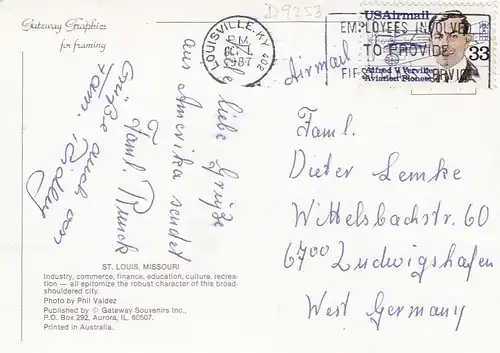 Gateway Graphics
for framing
D9253
LOUISVILLE, KY 402
PM
1987
EMPLOYEES INVOLVED
TO PROVIDE
FIRST
USAirmail
33
Alfred V. Verville
Aviation Pioneer
Airmail
Viele liebe Grüße
aus Amerika sendet
Faml. Runck
Grüße auch von
Fam. Ridley
Faml.
Dieter Lemke
Wittelsbachstr. 60
6700 Ludwigshafen
West Germany
ST. LOUIS, MISSOURI
Industry, commerce, finance, education, culture, recrea-
tion — all epitomize the robust character of this broad-
shouldered city.
Photo by Phil Valdez
Published by © Gateway Souvenirs Inc.,
P.O. Box 292, Aurora, IL. 60507.
Printed in Australia.